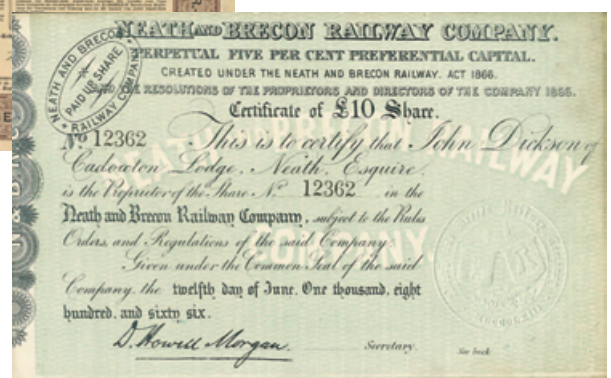 NEATH AND BRECON RAILWAY COMPANY.
PERPETUAL FIVE PER CENT PREFERENTIAL CAPITAL.
CREATED UNDER THE NEATH AND BRECON RAILWAY. ACT 1866.
AND THE RESOLUTIONS OF THE PROPRIETORS AND DIRECTORS OF THE COMPANY 1866.
NEATH AND BRECON
RAILWAY COMPANY
PAID UP SHARE
Certificate of £10 Share.
No. 12362 This is to certify that John Dickson of
Cadoxton Lodge, Neath, Esquire.
is the Proprietor of the Share No. 12362 in the
Neath and Brecon Railway Company, subject to the Rules
Orders, and Regulations of the said Company.
Given under the Common Seal of the said
Company, the twelfth day of June. One thousand, eight
hundred, and sixty six.
D. Howell Morgan. Secretary. See back
NEATH AND BRECON RAILWAY
COMPANY